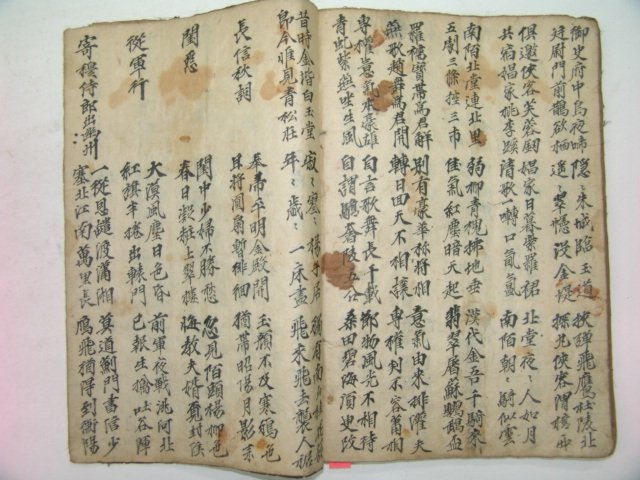 御史府中烏夜啼 隱々朱城臨玉道 挾彈飛鷹杜陵北
廷尉門前鵲欲栖 遙々翠幰沒金堤 探丸俠客渭橋
俱邀俠客芙蓉劍 娼家日暮紫羅裙 北堂夜々人如月
共宿娼家桃李蹊 清歌一囀口氛氳 南陌朝々騎似雲
南陌北堂連北里 弱柳青槐拂地垂 漢代金吾千騎來
五劇三條控三市 佳氣紅塵暗天起 翡翠屠蘇鸚鵡盃
羅襦寶帶爲君解 別有豪華称將相 意氣由來排灌夫
燕歌趙舞爲君開 轉日回天不相讓 專權判不容蕭相
專權意氣本豪雄 自言歌舞長千載 節物風光不相待
青虬紫燕坐生風 自謂驕奢凌五公 桑田碧海須臾改
昔時金階白玉堂 寂々寥々楊子居 獨有南山桂
即今惟見青松在 年々歲々一床書 飛來飛去襲人裾
長信秋詞 奉帚平明金殿開 玉顔不及寒鴉色
且將團扇暫徘徊 猶帶昭陽日影來
閨怨 閨中少婦不勝愁 忽見陌頭楊柳色
春日凝粧上翠樓 悔教夫婿覓封侯
從軍行 大漠風塵日色昏 前軍夜戰洮河北
紅旗半捲出轅門 已報生擒吐谷渾
寄穆侍郎出幽州 一從恩譴渡瀟湘 莫道薊門書信少
塞北江南萬里長 鴈飛猶得到衡陽